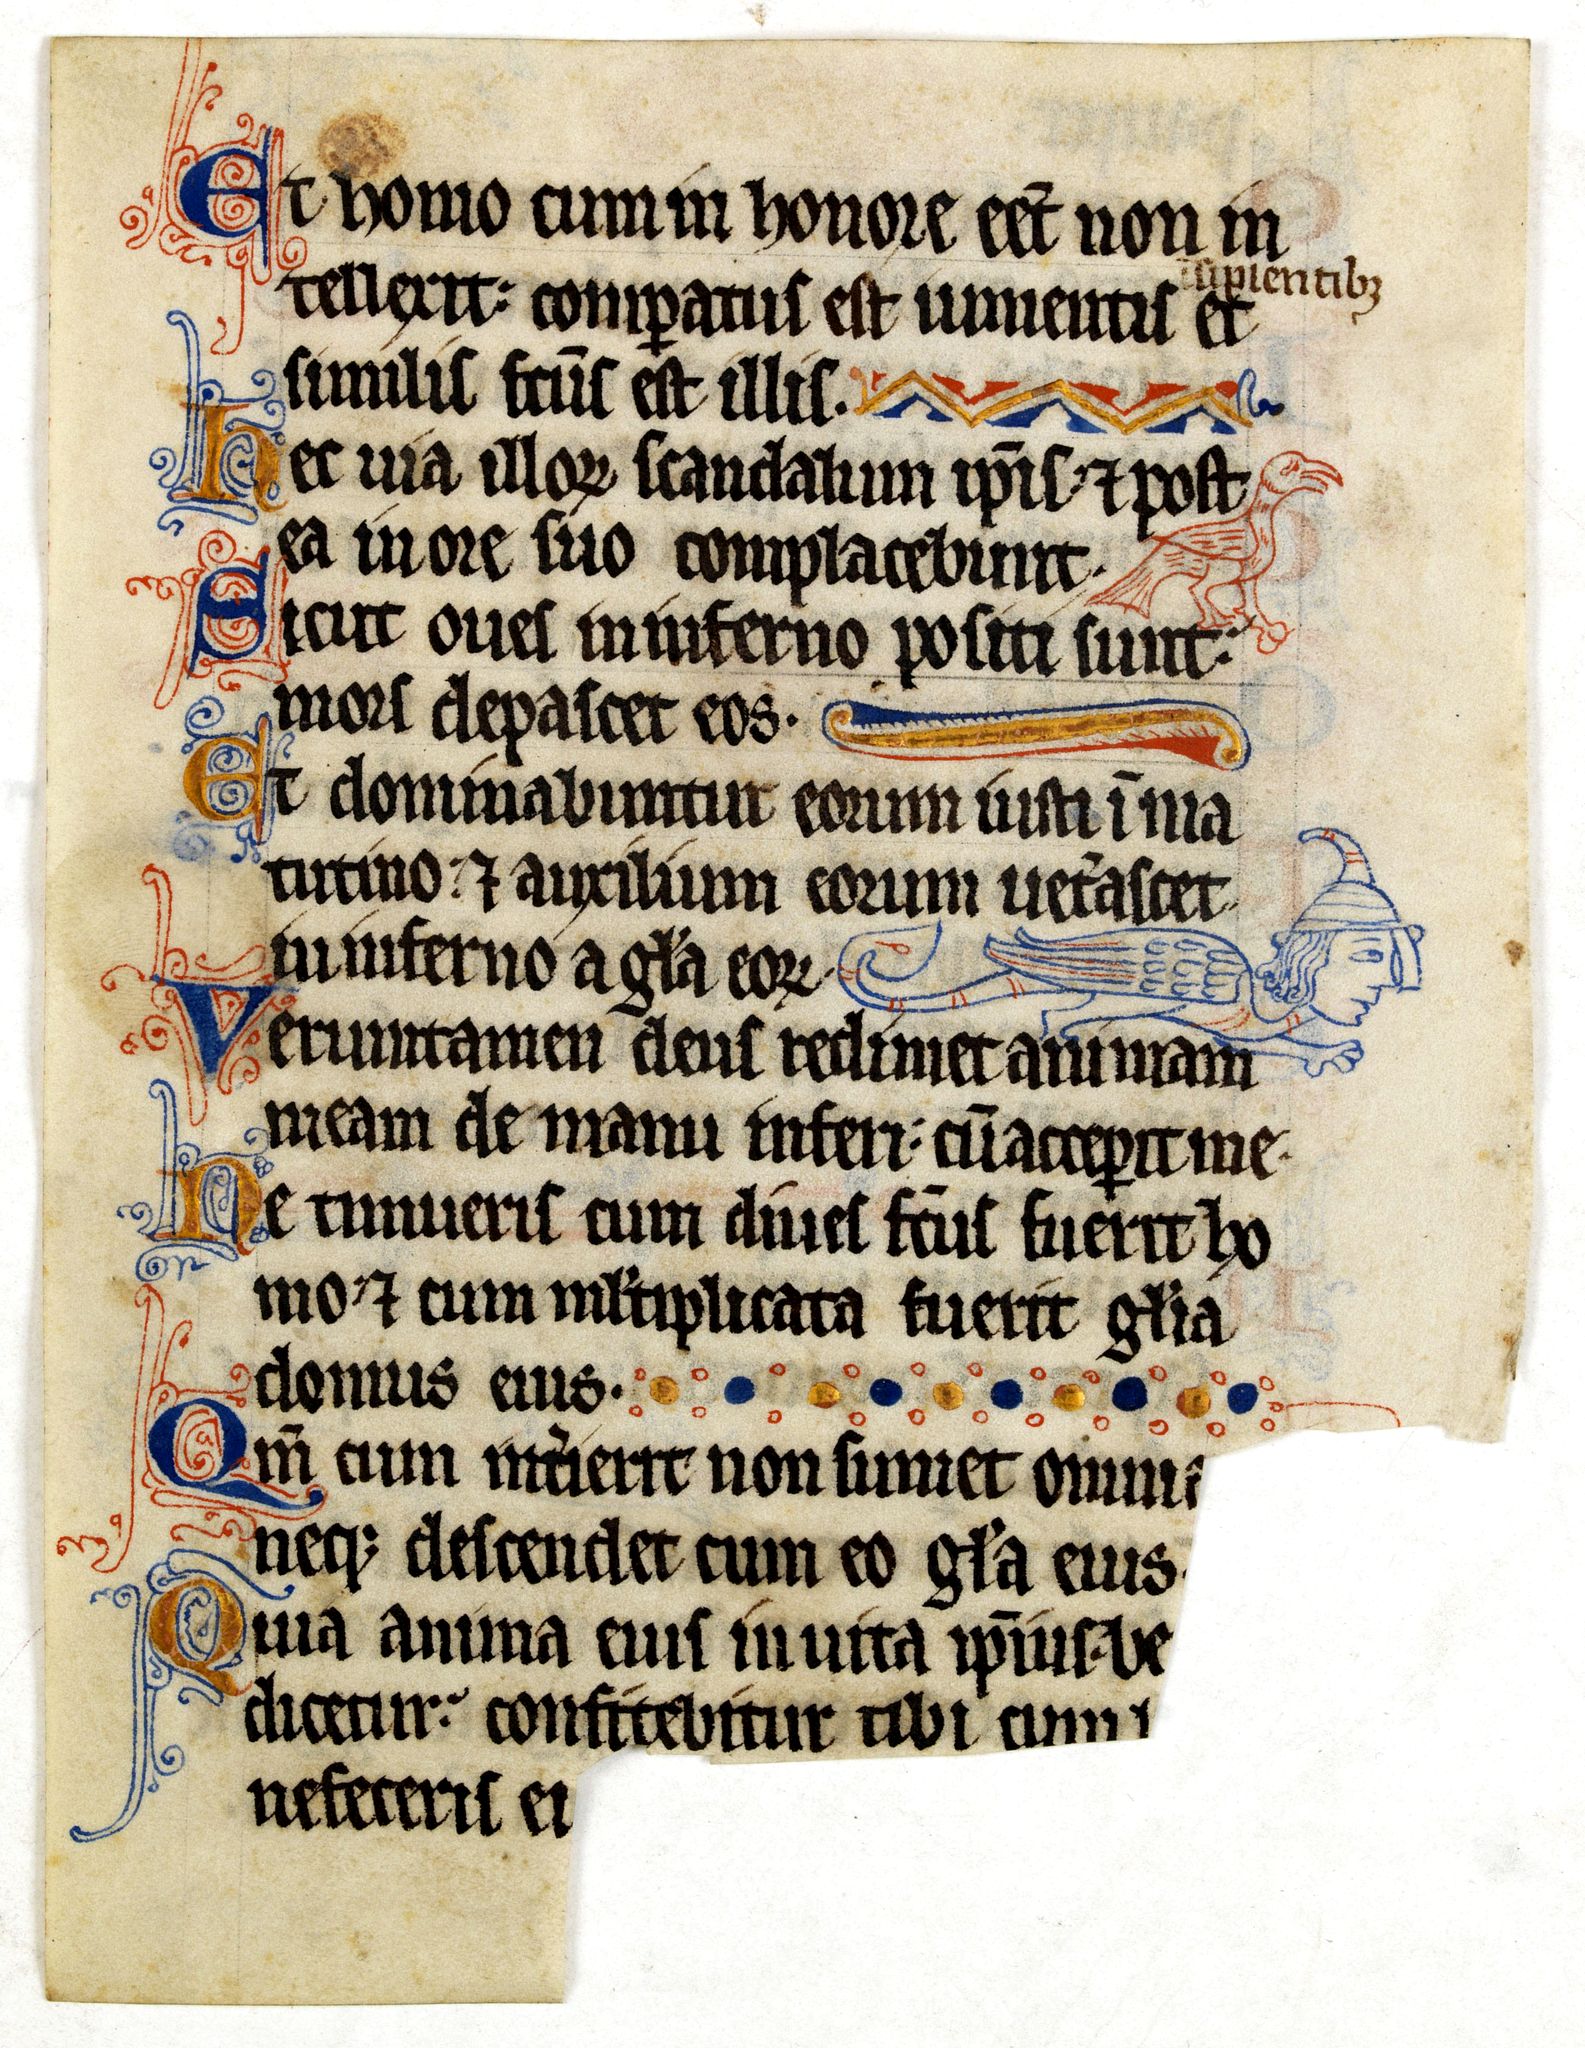 Et homo cum in honore eēt non in
insipientibꝫ
tellexit: comꝑatus est iumentis et
similis fcūs est illis.
Hec uia illoꝝ scandalum ip̄is: ⁊ post
ea in ore suo complacebunt.
Sicut oues in inferno positi sunt:
mors depascet eos.
Et dominabuntur eorum iusti ī ma
tutino: ⁊ auxilium eorum uet̾ascet
in inferno a gl̾a eoꝝ.
Veruntamen deus redimet animam
meam de manu inferi: cū acceꝑit me.
Ne timueris cum diues fcūs fuerit ho
mo: ⁊ cum ml̾tiplicata fuerit gl̾ia
domus eius.
Qm̄ cum int̾ierit non sumet omnia
neqꝫ descendet cum eo gl̾a eius.
Quia anima eius in uita ip̄ius be
dicetur: confitebitur tibi cum
nefeceris ei